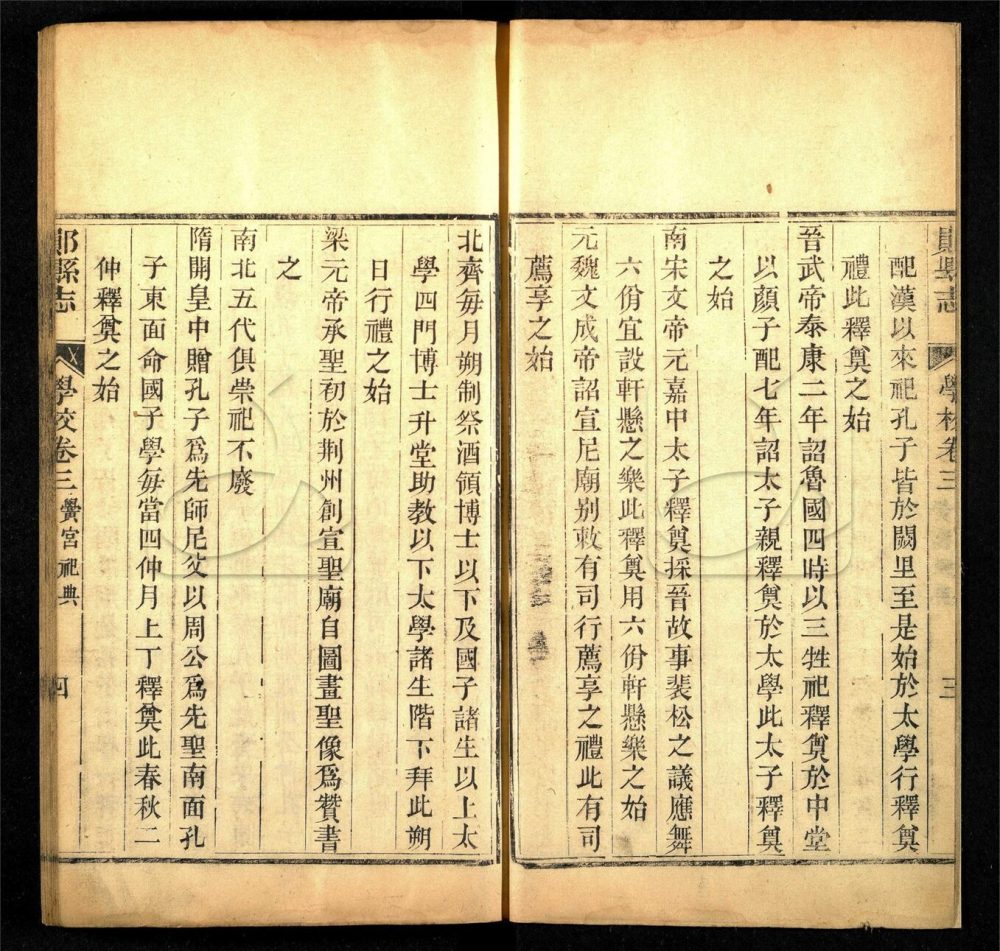 鄖縣志 學校卷三 三
配漢以來祀孔子皆於闕里至是始於太學行釋奠
禮此釋奠之始
晉武帝泰康二年詔魯國四時以三牲祀釋奠於中堂
以顏子配七年詔太子親釋奠於太學此太子釋奠
之始
南宋文帝元嘉中太子釋奠採晉故事裴松之議應舞
六佾宜設軒懸之樂此釋奠用六佾軒懸樂之始
元魏文成帝詔宣尼廟別敕有司行薦享之禮此有司
薦享之始
北齊每月朔制祭酒領博士以下及國子諸生以上太
學四門博士升堂助教以下太學諸生階下拜此朔
日行禮之始
梁元帝承聖初於荆州創宣聖廟自圖畫聖像爲贊書
之
南北五代俱崇祀不廢
隋開皇中贈孔子爲先師尼父以周公爲先聖南面孔
子東面命國子學每當四仲月上丁釋奠此春秋二
仲釋奠之始
鄖縣志 學校卷三 黌宮祀典 四